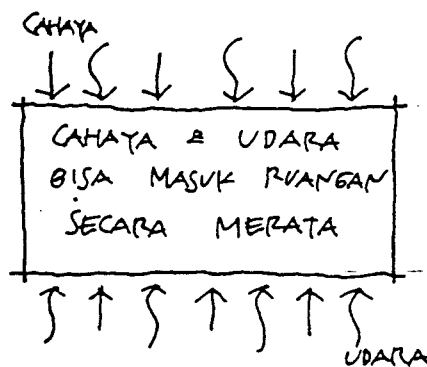 CAHAYA
CAHAYA & UDARA
BISA MASUK RUANGAN
SECARA MERATA
UDARA